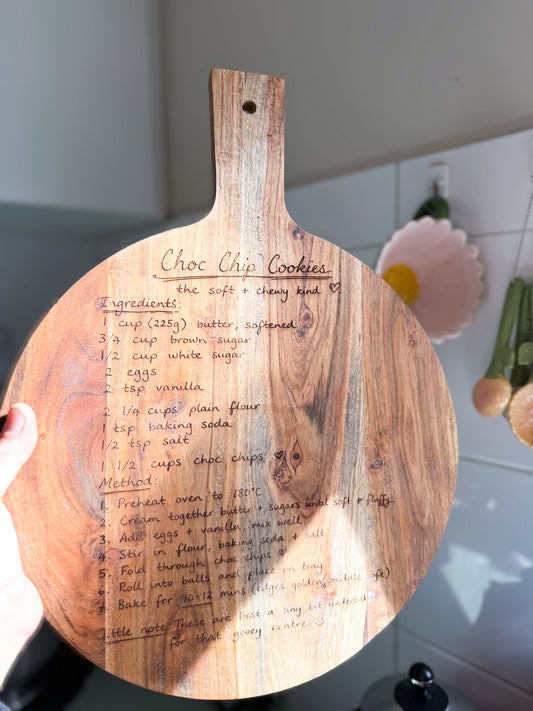 Choc Chip Cookies
the soft + chewy kind ♡
Ingredients:
1 cup (225g) butter, softened
3/4 cup brown sugar
1/2 cup white sugar
2 eggs
2 tsp vanilla
2 1/4 cups plain flour
1 tsp baking soda
1/2 tsp salt
1 1/2 cups choc chips ♡
Method:
1. Preheat oven to 180°C
2. Cream together butter + sugars until soft + fluffy
3. Add eggs + vanilla, mix well
4. Stir in flour, baking soda + salt
5. Fold through choc chips ♡
6. Roll into balls and place on tray
7. Bake for 10-12 mins (edges golden, middle soft)
little note: These are best a tiny bit undertaken
for that gooey centre. ☺